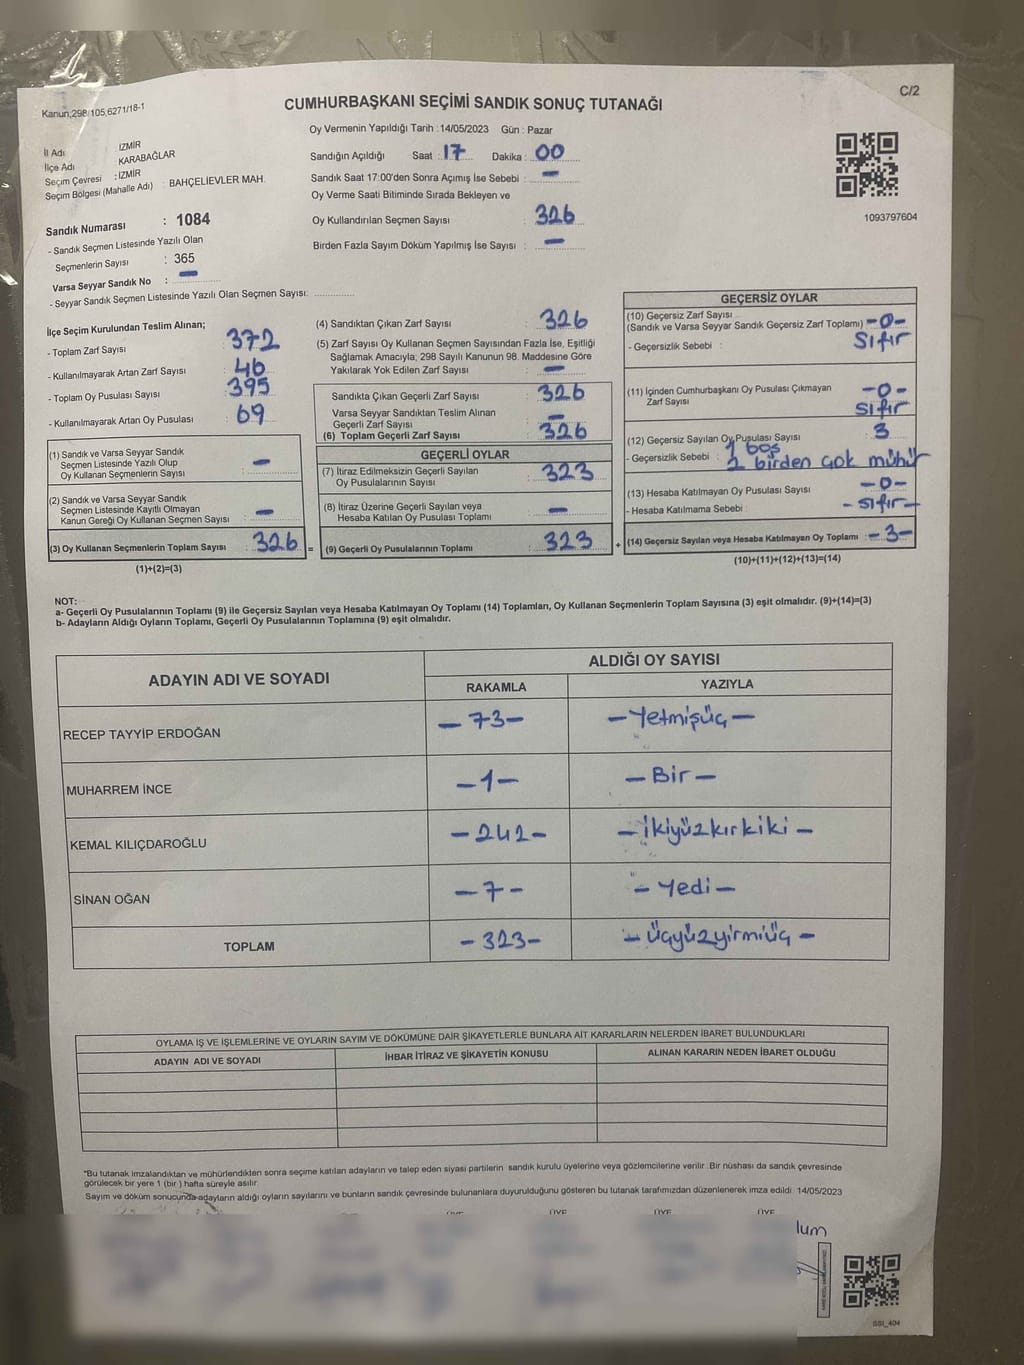 Kanun;298/105,6271/18-1
CUMHURBAŞKANI SEÇİMİ SANDIK SONUÇ TUTANAĞI
C/2
Oy Vermenin Yapıldığı Tarih : 14/05/2023 Gün : Pazar
İl Adı İZMİR
İlçe Adı KARABAĞLAR
Seçim Çevresi : İZMİR
Seçim Bölgesi (Mahalle Adı) : BAHÇELİEVLER MAH.
Sandığın Açıldığı Saat : 17 Dakika : 00
Sandık Saat 17:00'den Sonra Açımış İse Sebebi : —
Oy Verme Saati Bitiminde Sırada Bekleyen ve
Oy Kullandırılan Seçmen Sayısı : 326
Birden Fazla Sayım Döküm Yapılmış İse Sayısı : —
1093797604
Sandık Numarası : 1084
- Sandık Seçmen Listesinde Yazılı Olan
Seçmenlerin Sayısı : 365
Varsa Seyyar Sandık No : —
- Seyyar Sandık Seçmen Listesinde Yazılı Olan Seçmen Sayısı:
İlçe Seçim Kurulundan Teslim Alınan;
- Toplam Zarf Sayısı : 372
- Kullanılmayarak Artan Zarf Sayısı : 46
- Toplam Oy Pusulası Sayısı : 395
- Kullanılmayarak Artan Oy Pusulası : 69
(1) Sandık ve Varsa Seyyar Sandık
Seçmen Listesinde Yazılı Olup
Oy Kullanan Seçmenlerin Sayısı : —
(2) Sandık ve Varsa Seyyar Sandık
Seçmen Listesinde Kayıtlı Olmayan
Kanun Gereği Oy Kullanan Seçmen Sayısı : —
(3) Oy Kullanan Seçmenlerin Toplam Sayısı : 326 =
(1)+(2)=(3)
(4) Sandıktan Çıkan Zarf Sayısı : 326
(5) Zarf Sayısı Oy Kullanan Seçmen Sayısından Fazla İse, Eşitliği
Sağlamak Amacıyla; 298 Sayılı Kanunun 98. Maddesine Göre
Yakılarak Yok Edilen Zarf Sayısı : —
Sandıkta Çıkan Geçerli Zarf Sayısı : 326
Varsa Seyyar Sandıktan Teslim Alınan
Geçerli Zarf Sayısı : —
(6) Toplam Geçerli Zarf Sayısı : 326
GEÇERLİ OYLAR
(7) İtiraz Edilmeksizin Geçerli Sayılan
Oy Pusulalarının Sayısı : 323
(8) İtiraz Üzerine Geçerli Sayılan veya
Hesaba Katılan Oy Pusulası Toplamı : —
(9) Geçerli Oy Pusulalarının Toplamı : 323 +
GEÇERSİZ OYLAR
(10) Geçersiz Zarf Sayısı
(Sandık ve Varsa Seyyar Sandık Geçersiz Zarf Toplamı) -0-
- Geçersizlik Sebebi : Sıfır
(11) İçinden Cumhurbaşkanı Oy Pusulası Çıkmayan
Zarf Sayısı -0-
sıfır
(12) Geçersiz Sayılan Oy Pusulası Sayısı : 3
- Geçersizlik Sebebi : 1 boş
2 birden çok mühür
(13) Hesaba Katılmayan Oy Pusulası Sayısı : -0-
- Hesaba Katılmama Sebebi : - sıfır -
(14) Geçersiz Sayılan veya Hesaba Katılmayan Oy Toplamı : -3-
(10)+(11)+(12)+(13)=(14)
NOT:
a- Geçerli Oy Pusulalarının Toplamı (9) ile Geçersiz Sayılan veya Hesaba Katılmayan Oy Toplamı (14) Toplamları, Oy Kullanan Seçmenlerin Toplam Sayısına (3) eşit olmalıdır. (9)+(14)=(3)
b- Adayların Aldığı Oyların Toplamı, Geçerli Oy Pusulalarının Toplamına (9) eşit olmalıdır.
ADAYIN ADI VE SOYADI ALDIĞI OY SAYISI
RAKAMLA YAZIYLA
RECEP TAYYİP ERDOĞAN -73- -Yetmişüç-
MUHARREM İNCE -1- -Bir-
KEMAL KILIÇDAROĞLU -242- -İkiyüzkırkiki-
SİNAN OĞAN -7- -Yedi-
TOPLAM -323- -Üçyüzyirmiüç-
OYLAMA İŞ VE İŞLEMLERİNE VE OYLARIN SAYIM VE DÖKÜMÜNE DAİR ŞİKAYETLERLE BUNLARA AİT KARARLARIN NELERDEN İBARET BULUNDUKLARI
ADAYIN ADI VE SOYADI İHBAR İTİRAZ VE ŞİKAYETİN KONUSU ALINAN KARARIN NEDEN İBARET OLDUĞU
"Bu tutanak imzalandıktan ve mühürlendikten sonra seçime katılan adayların ve talep eden siyasi partilerin sandık kurulu üyelerine veya gözlemcilerine verilir. Bir nüshası da sandık çevresinde
görülecek bir yere 1 (bir ) hafta süreyle asılır.
Sayım ve döküm sonucunda adayların aldığı oyların sayılarını ve bunların sandık çevresinde bulunanlara duyurulduğunu gösteren bu tutanak tarafımızdan düzenlenerek imza edildi. 14/05/2023
ÜYE ÜYE ÜYE ÜYE
lum
SSI_404